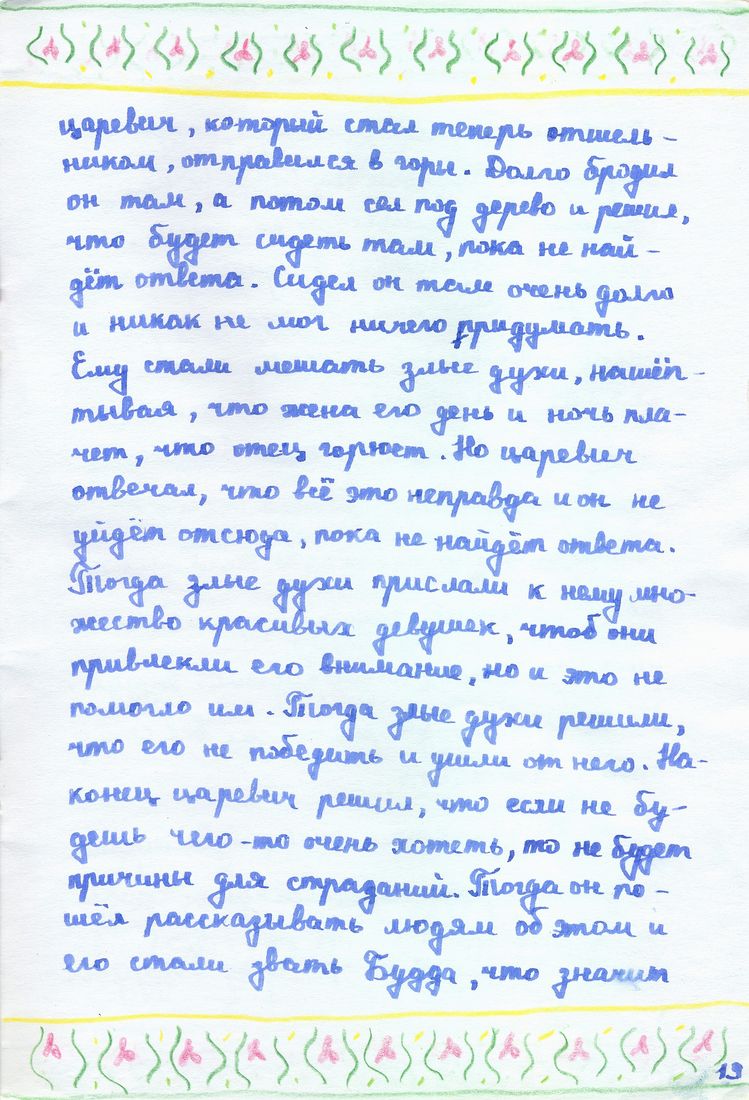 царевич, который стал теперь отшель-
ником, отправился в горы. Долго бродил
он там, а потом сел под дерево и решил,
что будет сидеть там, пока не най-
дёт ответа. Сидел он там очень долго
и никак не мог ничего придумать.
Ему стали мешать злые духи, нашёп-
тывая, что жена его день и ночь пла-
чет, что отец горюет. Но царевич
отвечал, что всё это неправда и он не
уйдёт отсюда, пока не найдёт ответа.
Тогда злые духи прислали к нему мно-
жество красивых девушек, чтоб они
привлекли его внимание, но и это не
помогло им. Тогда злые духи решили,
что его не победить и ушли от него. На-
конец царевич решил, что если не бу-
дешь чего-то очень хотеть, то не будет
причины для страданий. Тогда он по-
шёл рассказывать людям об этом и
его стали звать Будда, что значит
19